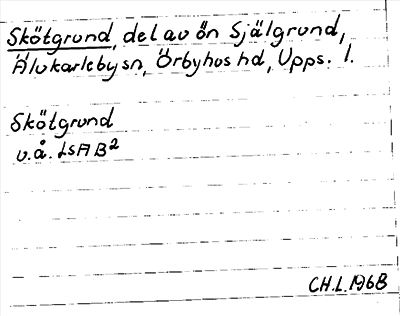 Skötgrund, del av ön Själgrund,
Älvkarleby sn, Örbyhus hd, Upps. l.
Skötgrund
u.å. LSA B²
CH.L. 1968